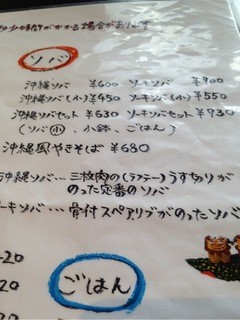 少々時間がかかる場合があります
ソバ
沖縄ソバ ¥600 ソーキソバ ¥900
沖縄ソバ(小) ¥450 ソーキソバ(小) ¥550
沖縄ソバセット ¥630 ソーキソバセット ¥730
(ソバ小、小鉢、ごはん)
沖縄風やきそば ¥680
沖縄ソバ… 三枚肉の(ラフテー)うす切りが
のった定番のソバ
ーキソバ… 骨付スペアリブがのったソバ
ごはん